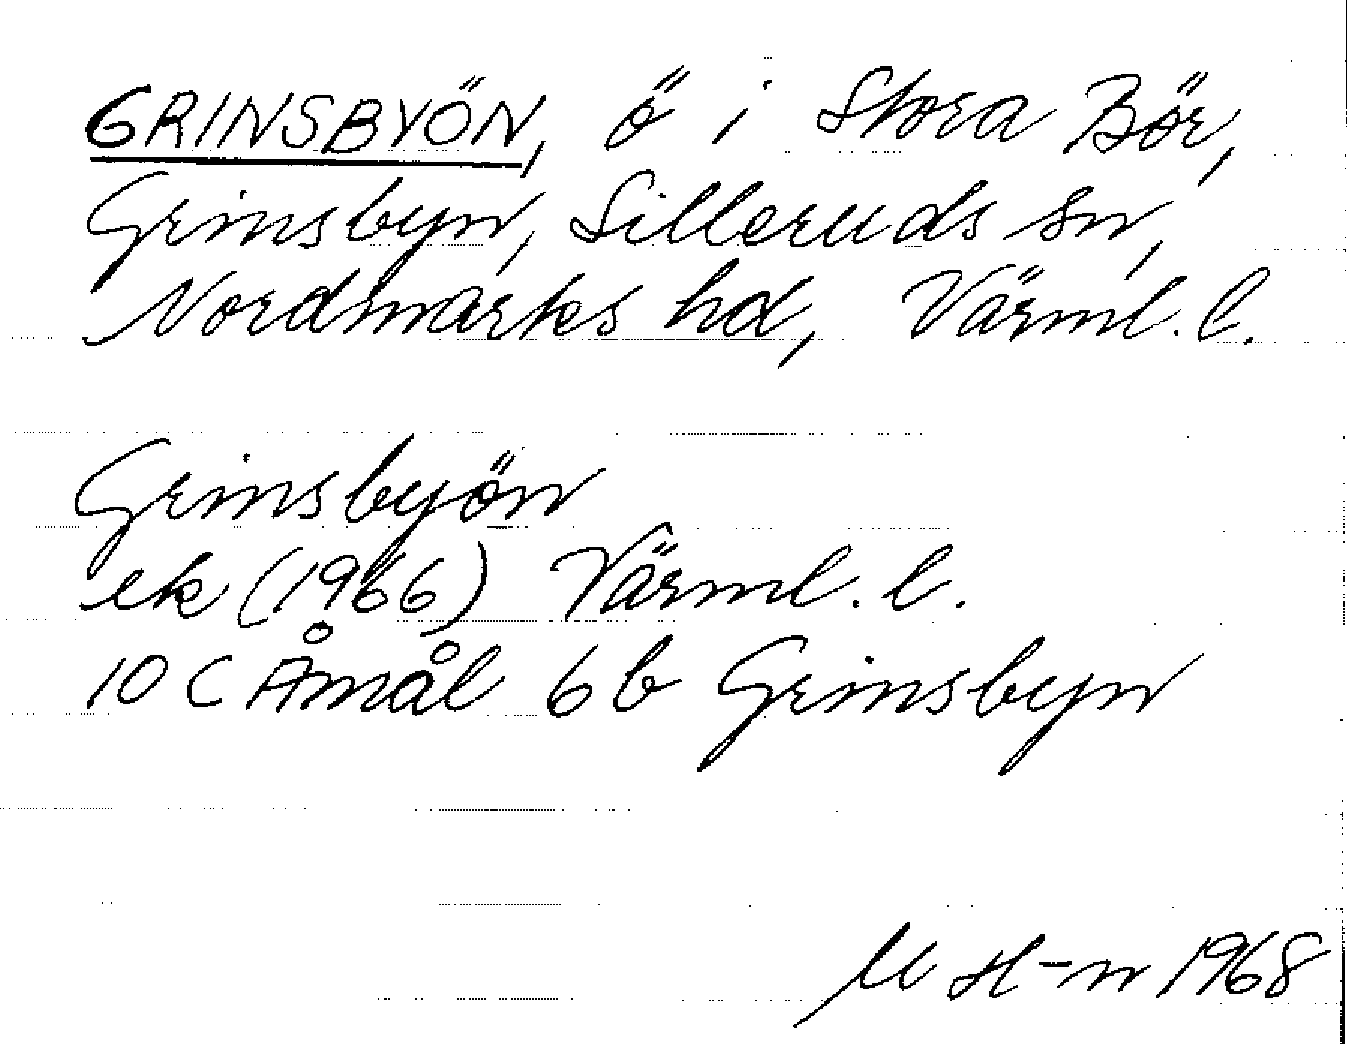 GRINSBYÖN, ö i Stora Bör,
Grinsbyn, Silleruds sn,
Nordmarks hd, Värml. l.
Grinsbyön
ek (1966) Värml. l.
10 C Åmål 6 b Grinsbyn
M H-n 1968